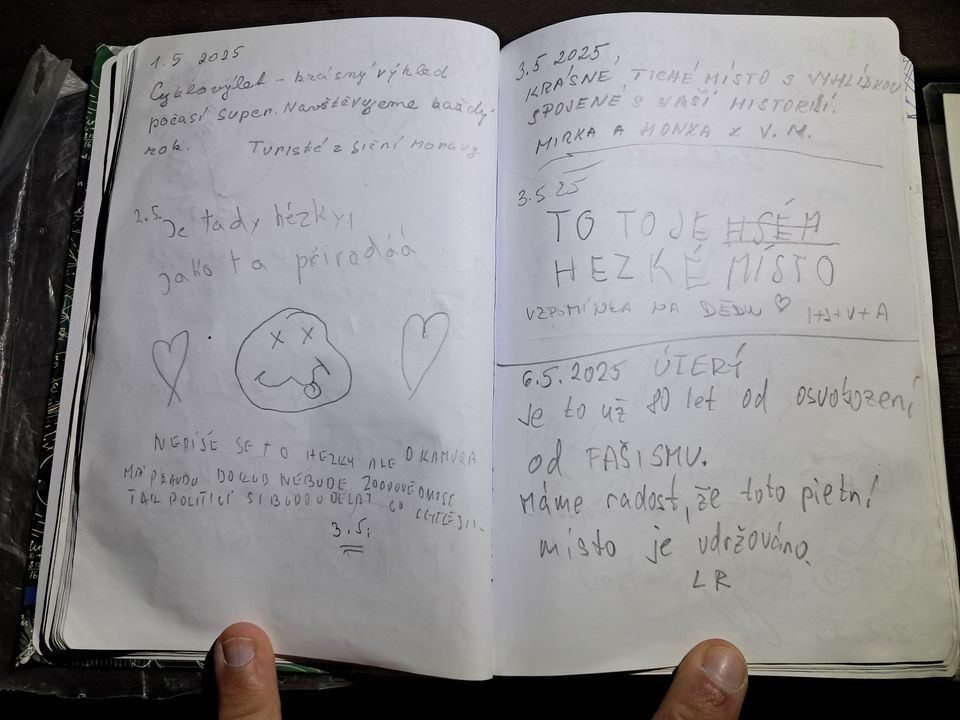 1.5 2025
Cyklovýlet - krásný výhled
počasí super. Navštěvujeme každý
rok. Turisté z Jižní Moravy
2.5. Je tady hézky,
jako ta přirodáá
NEPÍŠE SE TO HEZKY ALE OKAMURA
MÁ PRAVDU DOKUD NEBUDE
TAK POLITICI SI BUDOU DĚLAT CO CHTĚJÍ.
3.5.
3.5.2025
KRÁSNÉ, TICHÉ MÍSTO S VYHLÍDKOU
SPOJENÉ S NAŠÍ HISTORIÍ.
MIRKA A HONZA Z V.M.
3.5.25
TO TO JE
HEZKÉ MÍSTO
VZPOMÍNKA NA DĚDU ♡ I+J+V+A
6.5.2025 ÚTERÝ
je to už 80 let od osvobození
od FAŠISMU.
Máme radost, že toto pietní
místo je udržováno.
LR